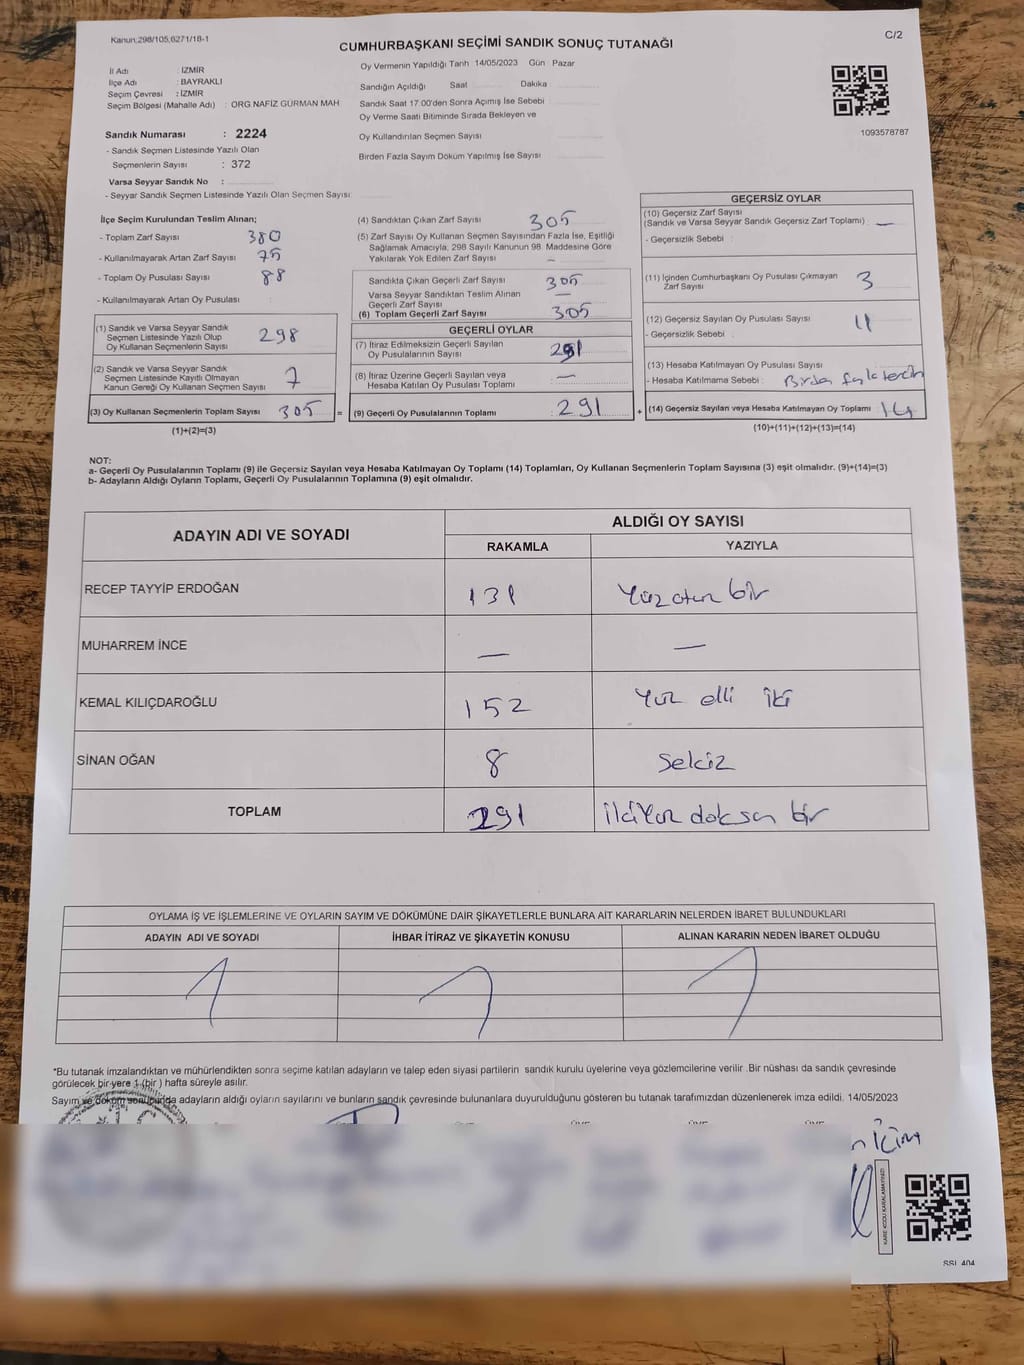 Kanun:298/105,6271/18-1
C/2
CUMHURBAŞKANI SEÇİMİ SANDIK SONUÇ TUTANAĞI
İl Adı : İZMİR
İlçe Adı : BAYRAKLI
Seçim Çevresi : İZMİR
Seçim Bölgesi (Mahalle Adı) : ORG.NAFİZ GÜRMAN MAH
Sandık Numarası : 2224
- Sandık Seçmen Listesinde Yazılı Olan
Seçmenlerin Sayısı : 372
Varsa Seyyar Sandık No :
- Seyyar Sandık Seçmen Listesinde Yazılı Olan Seçmen Sayısı:
Oy Vermenin Yapıldığı Tarih 14/05/2023 Gün : Pazar
Sandığın Açıldığı Saat Dakika :
Sandık Saat 17.00'den Sonra Açımış İse Sebebi
Oy Verme Saati Bitiminde Sırada Bekleyen ve
Oy Kullandırılan Seçmen Sayısı
Birden Fazla Sayım Döküm Yapılmış İse Sayısı
1093578787
İlçe Seçim Kurulundan Teslim Alınan;
- Toplam Zarf Sayısı 380
- Kullanılmayarak Artan Zarf Sayısı : 75
- Toplam Oy Pusulası Sayısı : 88
- Kullanılmayarak Artan Oy Pusulası :
(1) Sandık ve Varsa Seyyar Sandık
Seçmen Listesinde Yazılı Olup
Oy Kullanan Seçmenlerin Sayısı 298
(2) Sandık ve Varsa Seyyar Sandık
Seçmen Listesinde Kayıtlı Olmayan
Kanun Gereği Oy Kullanan Seçmen Sayısı 7
(3) Oy Kullanan Seçmenlerin Toplam Sayısı 305 =
(1)+(2)=(3)
(4) Sandıktan Çıkan Zarf Sayısı 305
(5) Zarf Sayısı Oy Kullanan Seçmen Sayısından Fazla İse, Eşitliği
Sağlamak Amacıyla, 298 Sayılı Kanunun 98. Maddesine Göre
Yakılarak Yok Edilen Zarf Sayısı –
Sandıkta Çıkan Geçerli Zarf Sayısı 305
Varsa Seyyar Sandıktan Teslim Alınan
Geçerli Zarf Sayısı —
(6) Toplam Geçerli Zarf Sayısı 305
GEÇERLİ OYLAR
(7) İtiraz Edilmeksizin Geçerli Sayılan
Oy Pusulalarının Sayısı 291
(8) İtiraz Üzerine Geçerli Sayılan veya
Hesaba Katılan Oy Pusulası Toplamı —
(9) Geçerli Oy Pusulalarının Toplamı 291 +
GEÇERSİZ OYLAR
(10) Geçersiz Zarf Sayısı
(Sandık ve Varsa Seyyar Sandık Geçersiz Zarf Toplamı) —
- Geçersizlik Sebebi :
(11) İçinden Cumhurbaşkanı Oy Pusulası Çıkmayan
Zarf Sayısı 3
(12) Geçersiz Sayılan Oy Pusulası Sayısı 11
- Geçersizlik Sebebi :
(13) Hesaba Katılmayan Oy Pusulası Sayısı
- Hesaba Katılmama Sebebi : Birden fazla tercih
(14) Geçersiz Sayılan veya Hesaba Katılmayan Oy Toplamı 14
(10)+(11)+(12)+(13)=(14)
NOT:
a- Geçerli Oy Pusulalarının Toplamı (9) ile Geçersiz Sayılan veya Hesaba Katılmayan Oy Toplamı (14) Toplamları, Oy Kullanan Seçmenlerin Toplam Sayısına (3) eşit olmalıdır. (9)+(14)=(3)
b- Adayların Aldığı Oyların Toplamı, Geçerli Oy Pusulalarının Toplamına (9) eşit olmalıdır.
ADAYIN ADI VE SOYADI
ALDIĞI OY SAYISI
RAKAMLA YAZIYLA
RECEP TAYYİP ERDOĞAN 131 Yüz otuz bir
MUHARREM İNCE — —
KEMAL KILIÇDAROĞLU 152 Yüz elli iki
SİNAN OĞAN 8 Sekiz
TOPLAM 291 ikiYüz doksan bir
OYLAMA İŞ VE İŞLEMLERİNE VE OYLARIN SAYIM VE DÖKÜMÜNE DAİR ŞİKAYETLERLE BUNLARA AİT KARARLARIN NELERDEN İBARET BULUNDUKLARI
ADAYIN ADI VE SOYADI İHBAR İTİRAZ VE ŞİKAYETİN KONUSU ALINAN KARARIN NEDEN İBARET OLDUĞU
*Bu tutanak imzalandıktan ve mühürlendikten sonra seçime katılan adayların ve talep eden siyasi partilerin sandık kurulu üyelerine veya gözlemcilerine verilir .Bir nüshası da sandık çevresinde
görülecek bir yere 1 (bir ) hafta süreyle asılır.
Sayım ve döküm sonucunda adayların aldığı oyların sayılarını ve bunların sandık çevresinde bulunanlara duyurulduğunu gösteren bu tutanak tarafımızdan düzenlenerek imza edildi. 14/05/2023
KARE KODU KARALAMAYINIZ!